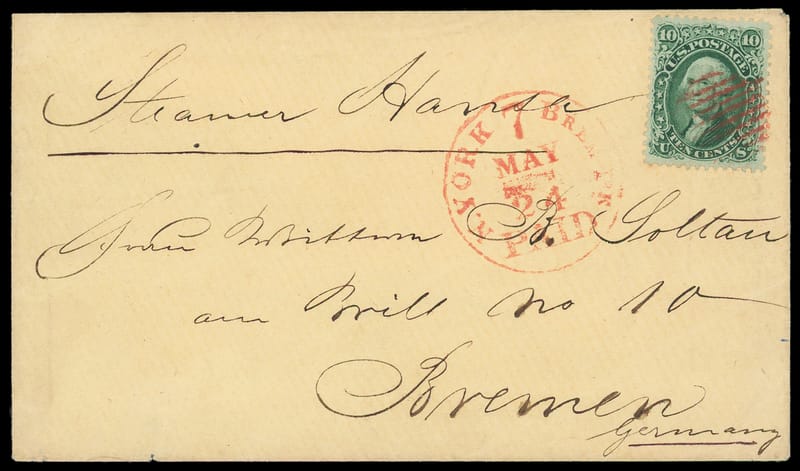 Steamer Hansa
10 10
U.S. POSTAGE
TEN CENTS
U S
N. YORK 7 BREM. PK
MAY
24
PAID
Frau Wittwe B. Soltau
am Brill No 10
Bremen
Germany